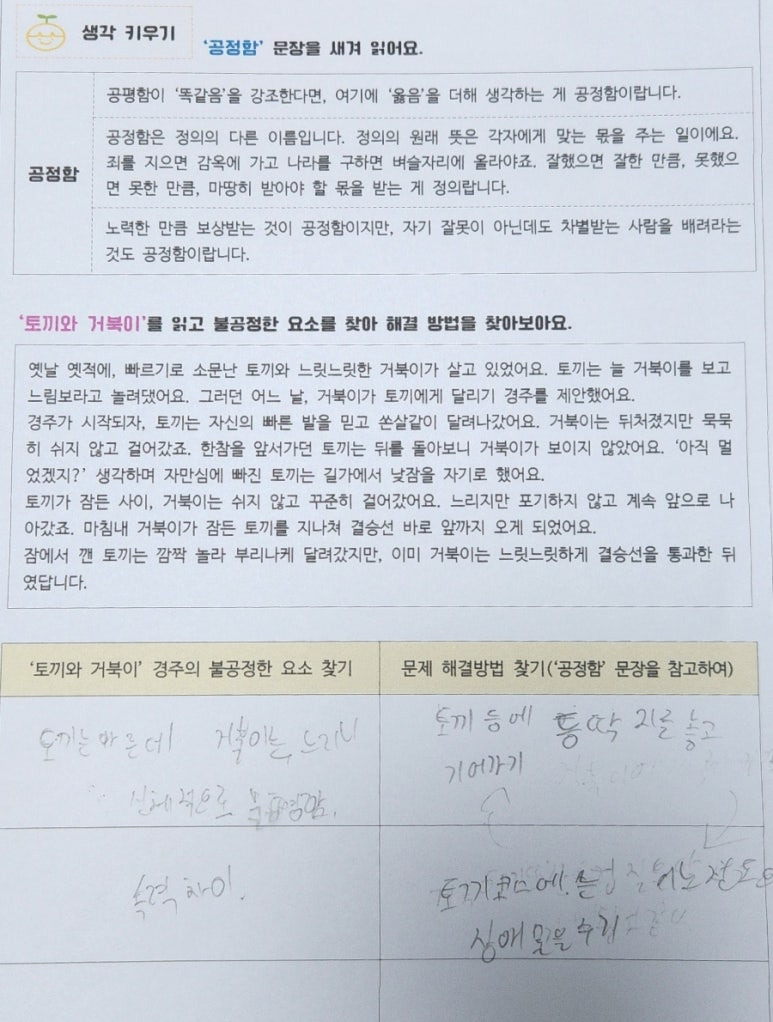 생각 키우기
'공정함' 문장을 새겨 읽어요.
공평함이 '똑같음'을 강조한다면, 여기에 '옳음'을 더해 생각하는 게 공정함이랍니다.
공정함은 정의의 다른 이름입니다. 정의의 원래 뜻은 각자에게 맞는 몫을 주는 일이에요.
죄를 지으면 감옥에 가고 나라를 구하면 벼슬자리에 올라야죠. 잘했으면 잘한 만큼, 못했으
면 못한 만큼, 마땅히 받아야 할 몫을 받는 게 정의랍니다.
공정함
노력한 만큼 보상받는 것이 공정함이지만, 자기 잘못이 아닌데도 차별받는 사람을 배려라는
것도 공정함이랍니다.
'토끼와 거북이'를 읽고 불공정한 요소를 찾아 해결 방법을 찾아보아요.
옛날 옛적에, 빠르기로 소문난 토끼와 느릿느릿한 거북이가 살고 있었어요. 토끼는 늘 거북이를 보고
느림보라고 놀려댔어요. 그러던 어느 날, 거북이가 토끼에게 달리기 경주를 제안했어요.
경주가 시작되자, 토끼는 자신의 빠른 발을 믿고 쏜살같이 달려나갔어요. 거북이는 뒤처졌지만 묵묵
히 쉬지 않고 걸어갔죠. 한참을 앞서가던 토끼는 뒤를 돌아보니 거북이가 보이지 않았어요. '아직 멀
었겠지?' 생각하며 자만심에 빠진 토끼는 길가에서 낮잠을 자기로 했어요.
토끼가 잠든 사이, 거북이는 쉬지 않고 꾸준히 걸어갔어요. 느리지만 포기하지 않고 계속 앞으로 나
아갔죠. 마침내 거북이가 잠든 토끼를 지나쳐 결승선 바로 앞까지 오게 되었어요.
잠에서 깬 토끼는 깜짝 놀라 부리나케 달려갔지만, 이미 거북이는 느릿느릿하게 결승선을 통과한 뒤
였답니다.
'토끼와 거북이' 경주의 불공정한 요소 찾기
문제 해결방법 찾기('공정함' 문장을 참고하여)
토끼는 빠른데 거북이는 느리니
신체적으로 불평등함.
토끼 등에 통딱지를 놓고
기어가기
속력 차이.
토끼 코스에
장애물을 추가